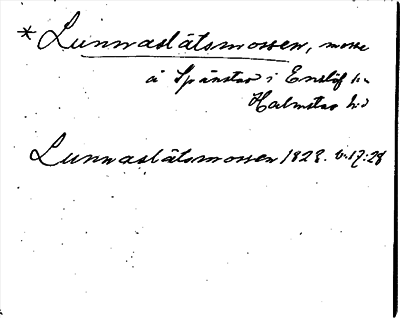 * Lunnaslätsmossen, mosse
å Spånstad i Enslöf sn
Halmstad hd
Lunnaslätsmossen 1828. v. 17:28